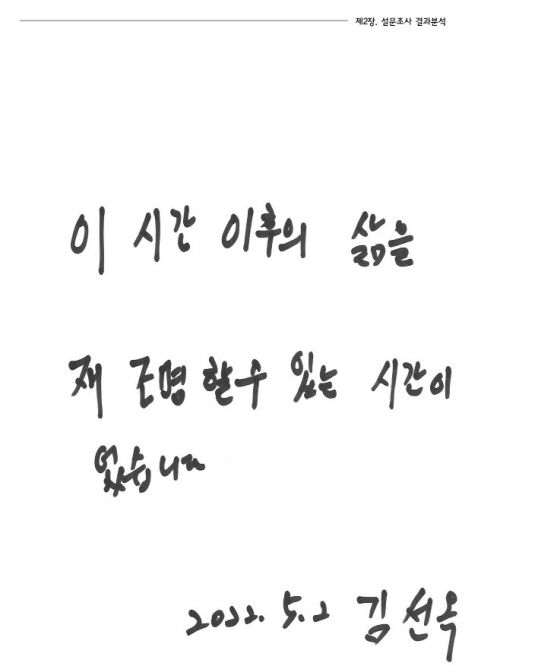 제2장. 설문조사 결과분석
이 시간 이후의 삶을
재 조명 할수 있는 시간이
었습니다
2022. 5. 2 김선옥